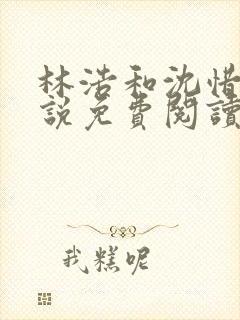 林浩和沈惜
說免費閱讀
我糕呢